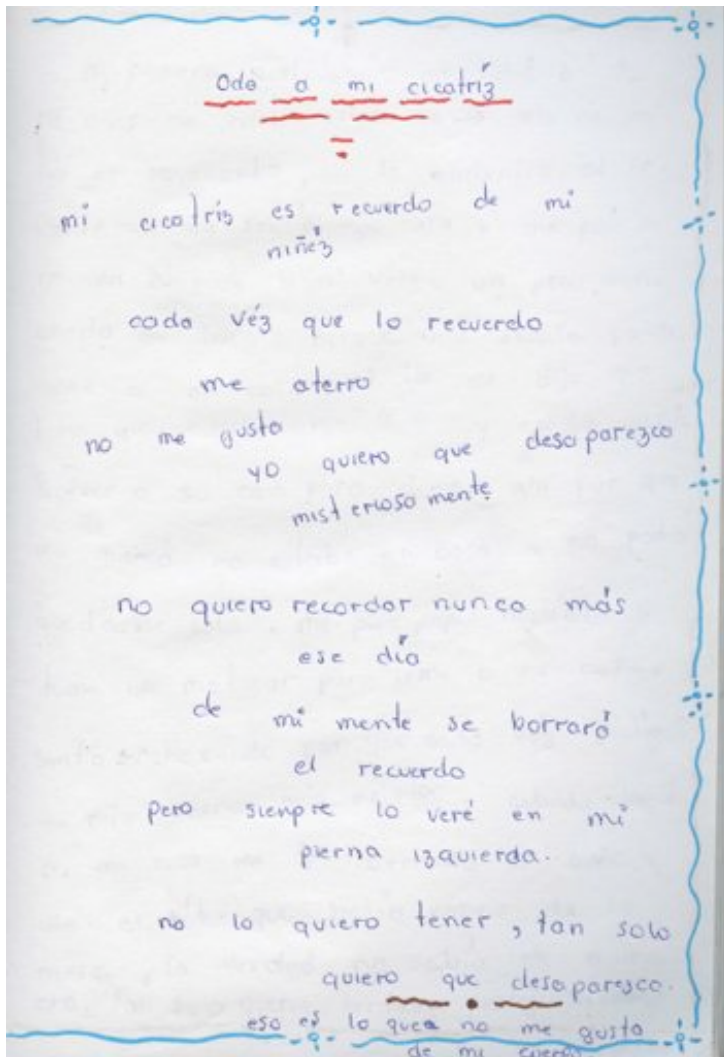 Oda a mi cicatríz
mi cicatríz es recuerdo de mi
niñéz
cada véz que lo recuerdo
me aterro
no me gusta
yo quiero que desaparezca
misteriosamente
no quiero recordar nunca más
ese día
de mi mente se borrará
el recuerdo
pero sienpre lo veré en mi
pierna izquierda.
no lo quiero tener, tan solo
quiero que desaparesca.
eso es lo que no me gusta
de mi cuerpo